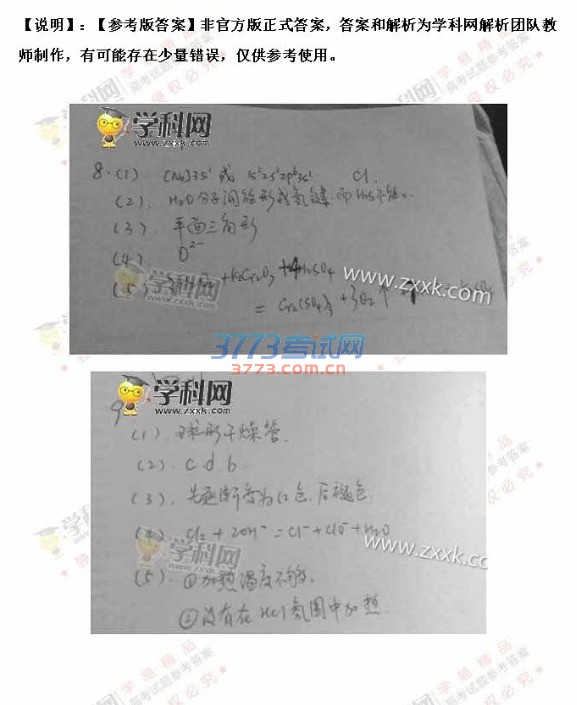 【说明】：【参考版答案】非官方版正式答案，答案和解析为学科网解析团队教
师制作，有可能存在少量错误，仅供参考使用。
学科网
zxxk.com
8.(1). [Ne]3s¹ 或 1s²2s²2p⁶3s¹ Cl.
(2). H₂O分子间能形成氢键，而H₂S不能。
(3). 平面三角形
(4). O²⁻
(5) +K₂Cr₂O₇ +4H₂SO₄
www.zxxk.com
= Cr₂(SO₄)₃ +3O₂↑
3773考试网
3773.com.cn
学科网
zxxk.com
9
(1). 球形干燥管.
(2). c.d.b.
(3). 先逐渐变为红色.后褪色
(4) Cl₂ + 2OH⁻ = Cl⁻ + ClO⁻ + H₂O
学科网
www.zxxk.com
(5). ①加热温度不够.
②没有在HCl氛围中加热.